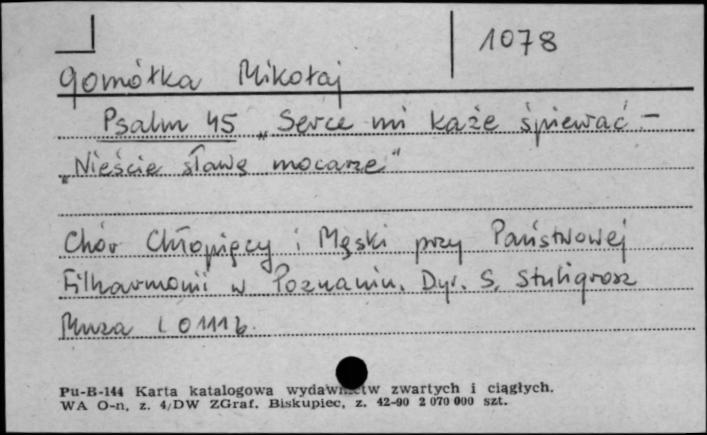 1078
Gomółka Mikołaj
Psalm 45 „Serce mi każe śpiewać –
„Nieście sławę mocarze"
Chór Chłopięcy i Męski przy Państwowej
Filharmonii w Poznaniu. Dyr. S. Stuligrosz
Muza L 0111 b.
Pu-B-144 Karta katalogowa wydawnictw zwartych i ciągłych.
WA O-n, z. 4/DW ZGraf. Biskupiec, z. 42-90 2 070 000 szt.